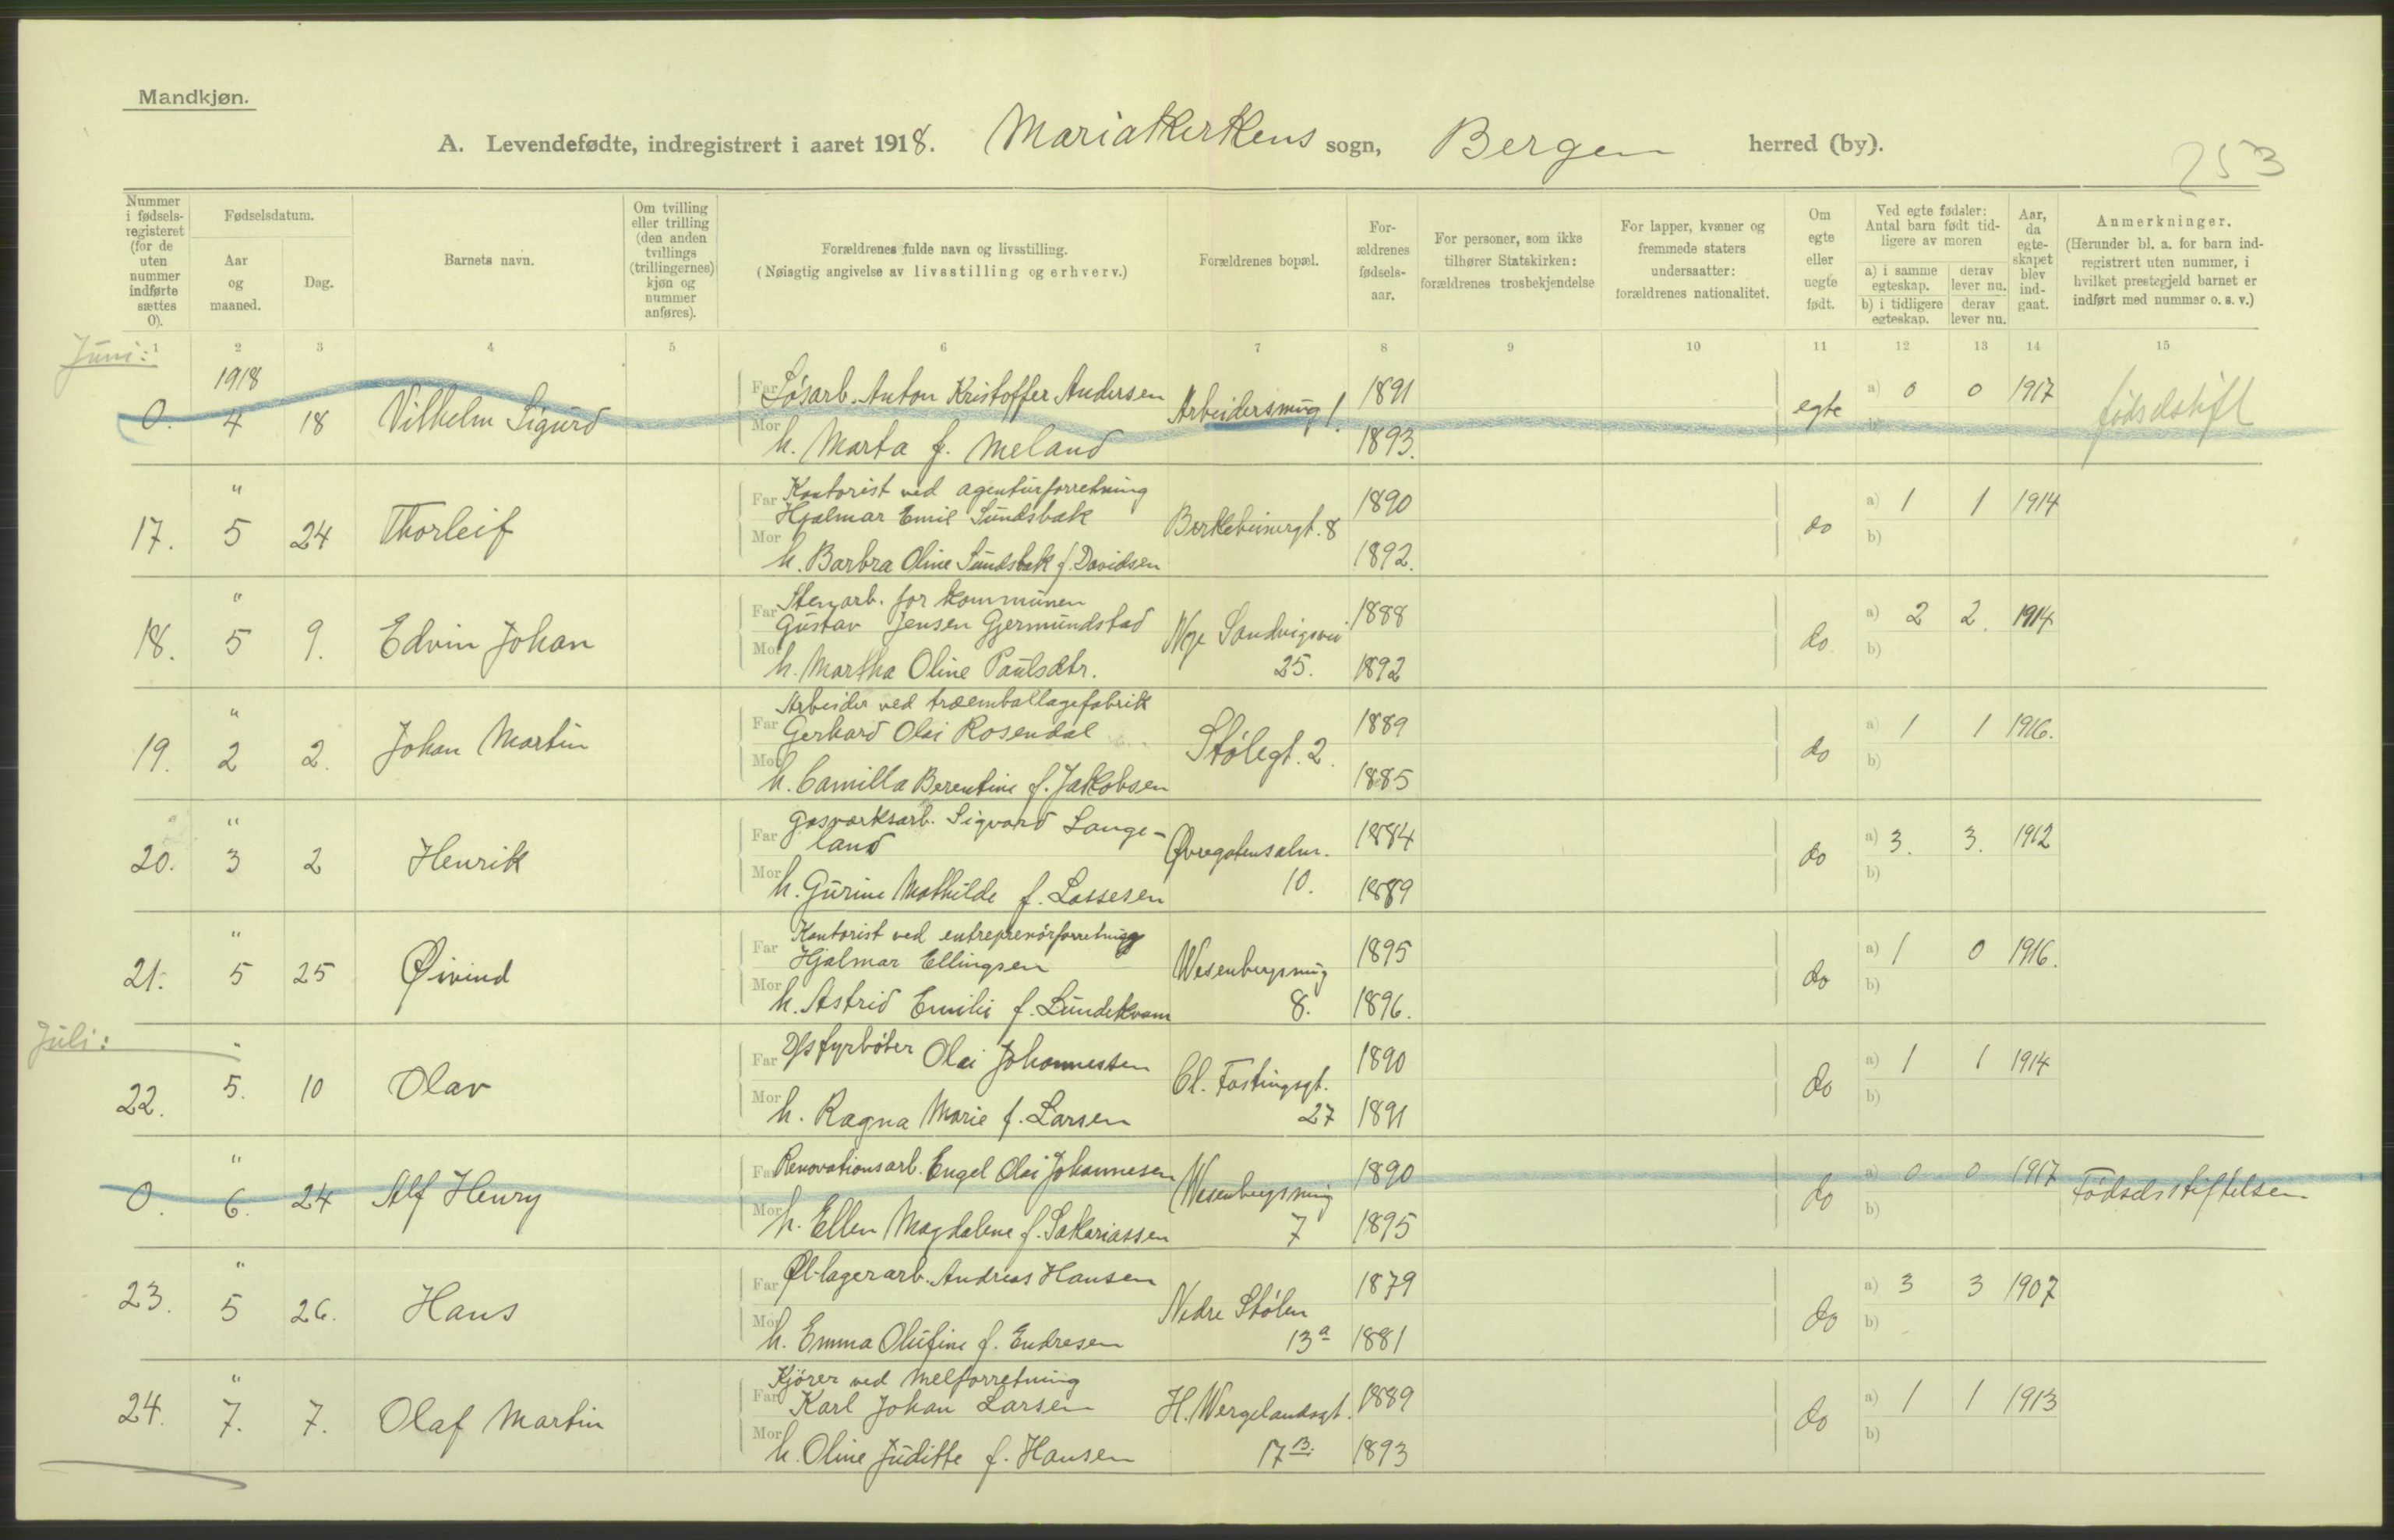 Mandkjøn.
A. Levendefødte, indregistrert i aaret 1918. Mariakirkens sogn, Bergen herred (by).
253
Nummer i fødsels-registeret (for de uten nummer indførte sættes 0).
Fødselsdatum.
Aar og maaned.
Dag.
Barnets navn.
Om tvilling eller trilling (den anden tvillings (trillingernes) kjøn og nummer anføres).
Forældrenes fulde navn og livsstilling.
(Nøiagtig angivelse av livsstilling og erhverv.)
Forældrenes bopæl.
For-ældrenes fødsels-aar.
For personer, som ikke tilhører Statskirken: forældrenes trosbekjendelse
For lapper, kvæner og fremmede staters undersaatter: forældrenes nationalitet.
Om egte eller uegte født.
Ved egte fødsler: Antal barn født tid-ligere av moren
a) i samme egteskap. derav lever nu.
b) i tidligere egteskap. derav lever nu.
Aar, da egte-skapet blev ind-gaat.
Anmerkninger.
(Herunder bl. a. for barn ind-registrert uten nummer, i hvilket prestegjeld barnet er indført med nummer o. s. v.)
1 2 3 4 5 6 7 8 9 10 11 12 13 14 15
Juni:
1918
0. 4 18 Vilhelm Sigurd Far Løsarb. Anton Kristoffer Andersen Arbeidersmug 1. 1891 egte a) 0 0 1917 fødselstift
Mor h. Marta f. Meland 1893. b)
" Far Kontorist ved agenturforretning
17. 5 24 Thorleif Hjalmar Emil Sundsbak Birkebeinergt. 8 1890 do a) 1 1 1914
Mor h. Barbra Oline Sundsbak f. Davidsen 1892. b)
" Far Stenarb. for kommunen
18. 5 9. Edvin Johan Gustav Jensen Gjermundstad Nye Sandvigsvei 1888 do a) 2 2. 1914
Mor h. Martha Oline Paulsdtr. 25. 1892 b)
" Arbeider ved træemballagefabrik
19. 2 2. Johan Martin Far Gerhard Olai Rosendal Stølegt. 2. 1889 do a) 1 1 1916.
Mor h. Camilla Berentine f. Jakobsen 1885 b)
" Far Gasværksarb. Sigvard Lange-
20. 3 2 Henrik land Øvregatensalm. 1884 do a) 3. 3. 1912
Mor h. Gurine Mathilde f. Lassesen 10. 1889 b)
" Kontorist ved entreprenørforretning
21. 5 25 Øivind Far Hjalmar Ellingsen Wesenbergsmug 1895 do a) 1 0 1916.
Mor h. Astrid Emilie f. Lundekvam 8. 1896. b)
Juli:
"
22. 5. 10 Olav Far D/s fyrbøter Olai Johannessen Cl. Fastingsgt. 1890 do a) 1 1 1914
Mor h. Ragna Marie f. Larsen 27 1891 b)
"
0. 6. 24 Alf Henry Far Renovationsarb. Engel Olai Johannesen Wesenbergsmug 1890 do a) 0 0 1917 Fødselsstiftelsen
Mor h. Ellen Magdalene f. Sakariassen 7 1895 b)
"
23. 5 26. Hans Far Øl-lagerarb. Andreas Hansen Nedre Stølen 1879 do a) 3 3 1907
Mor h. Emma Olufine f. Endresen 13a 1881 b)
" Kjører ved melforretning
24. 7. 7. Olaf Martin Far Karl Johan Larsen H. Wergelandsgt. 1889 do a) 1 1 1913
Mor h. Oline Juditte f. Hansen 17B. 1893 b)